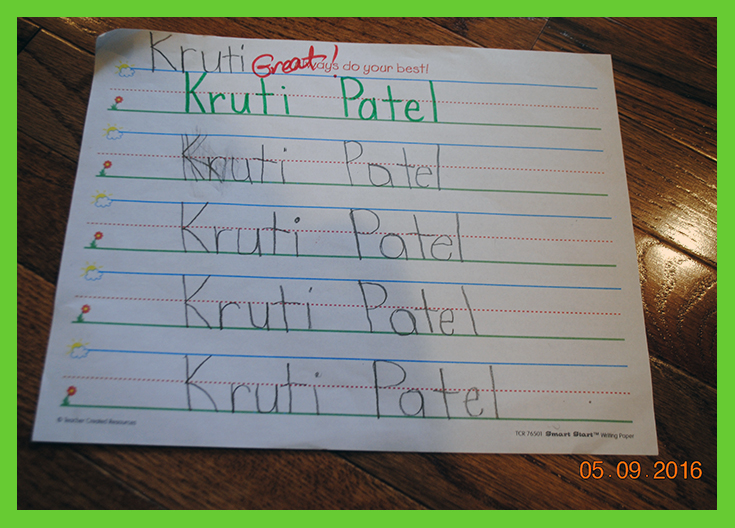 Kruti Great! ways do your best!
Kruti Patel
Kruti Patel
Kruti Patel
Kruti Patel
Kruti Patel
© Teacher Created Resources
TCR 76501 Smart Start™ Writing Paper
05.09.2016